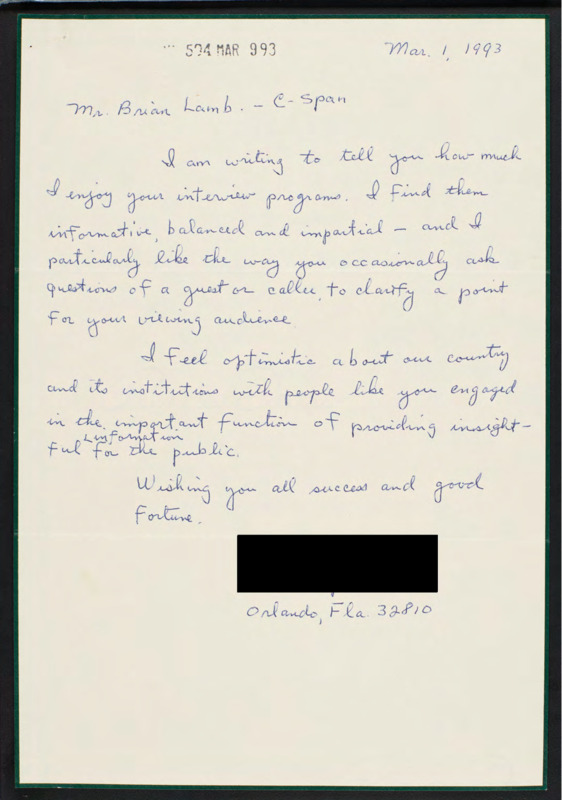 504 MAR 993
Mar. 1, 1993
Mr. Brian Lamb. - C-Span
I am writing to tell you how much
I enjoy your interview programs. I find them
informative, balanced and impartial - and I
particularly like the way you occasionally ask
questions of a guest or caller, to clarify a point
for your viewing audience.
I feel optimistic about our country
and its institutions with people like you engaged
in the important function of providing insight-
ful information for the public.
Wishing you all success and good
fortune.
Orlando, Fla. 32810